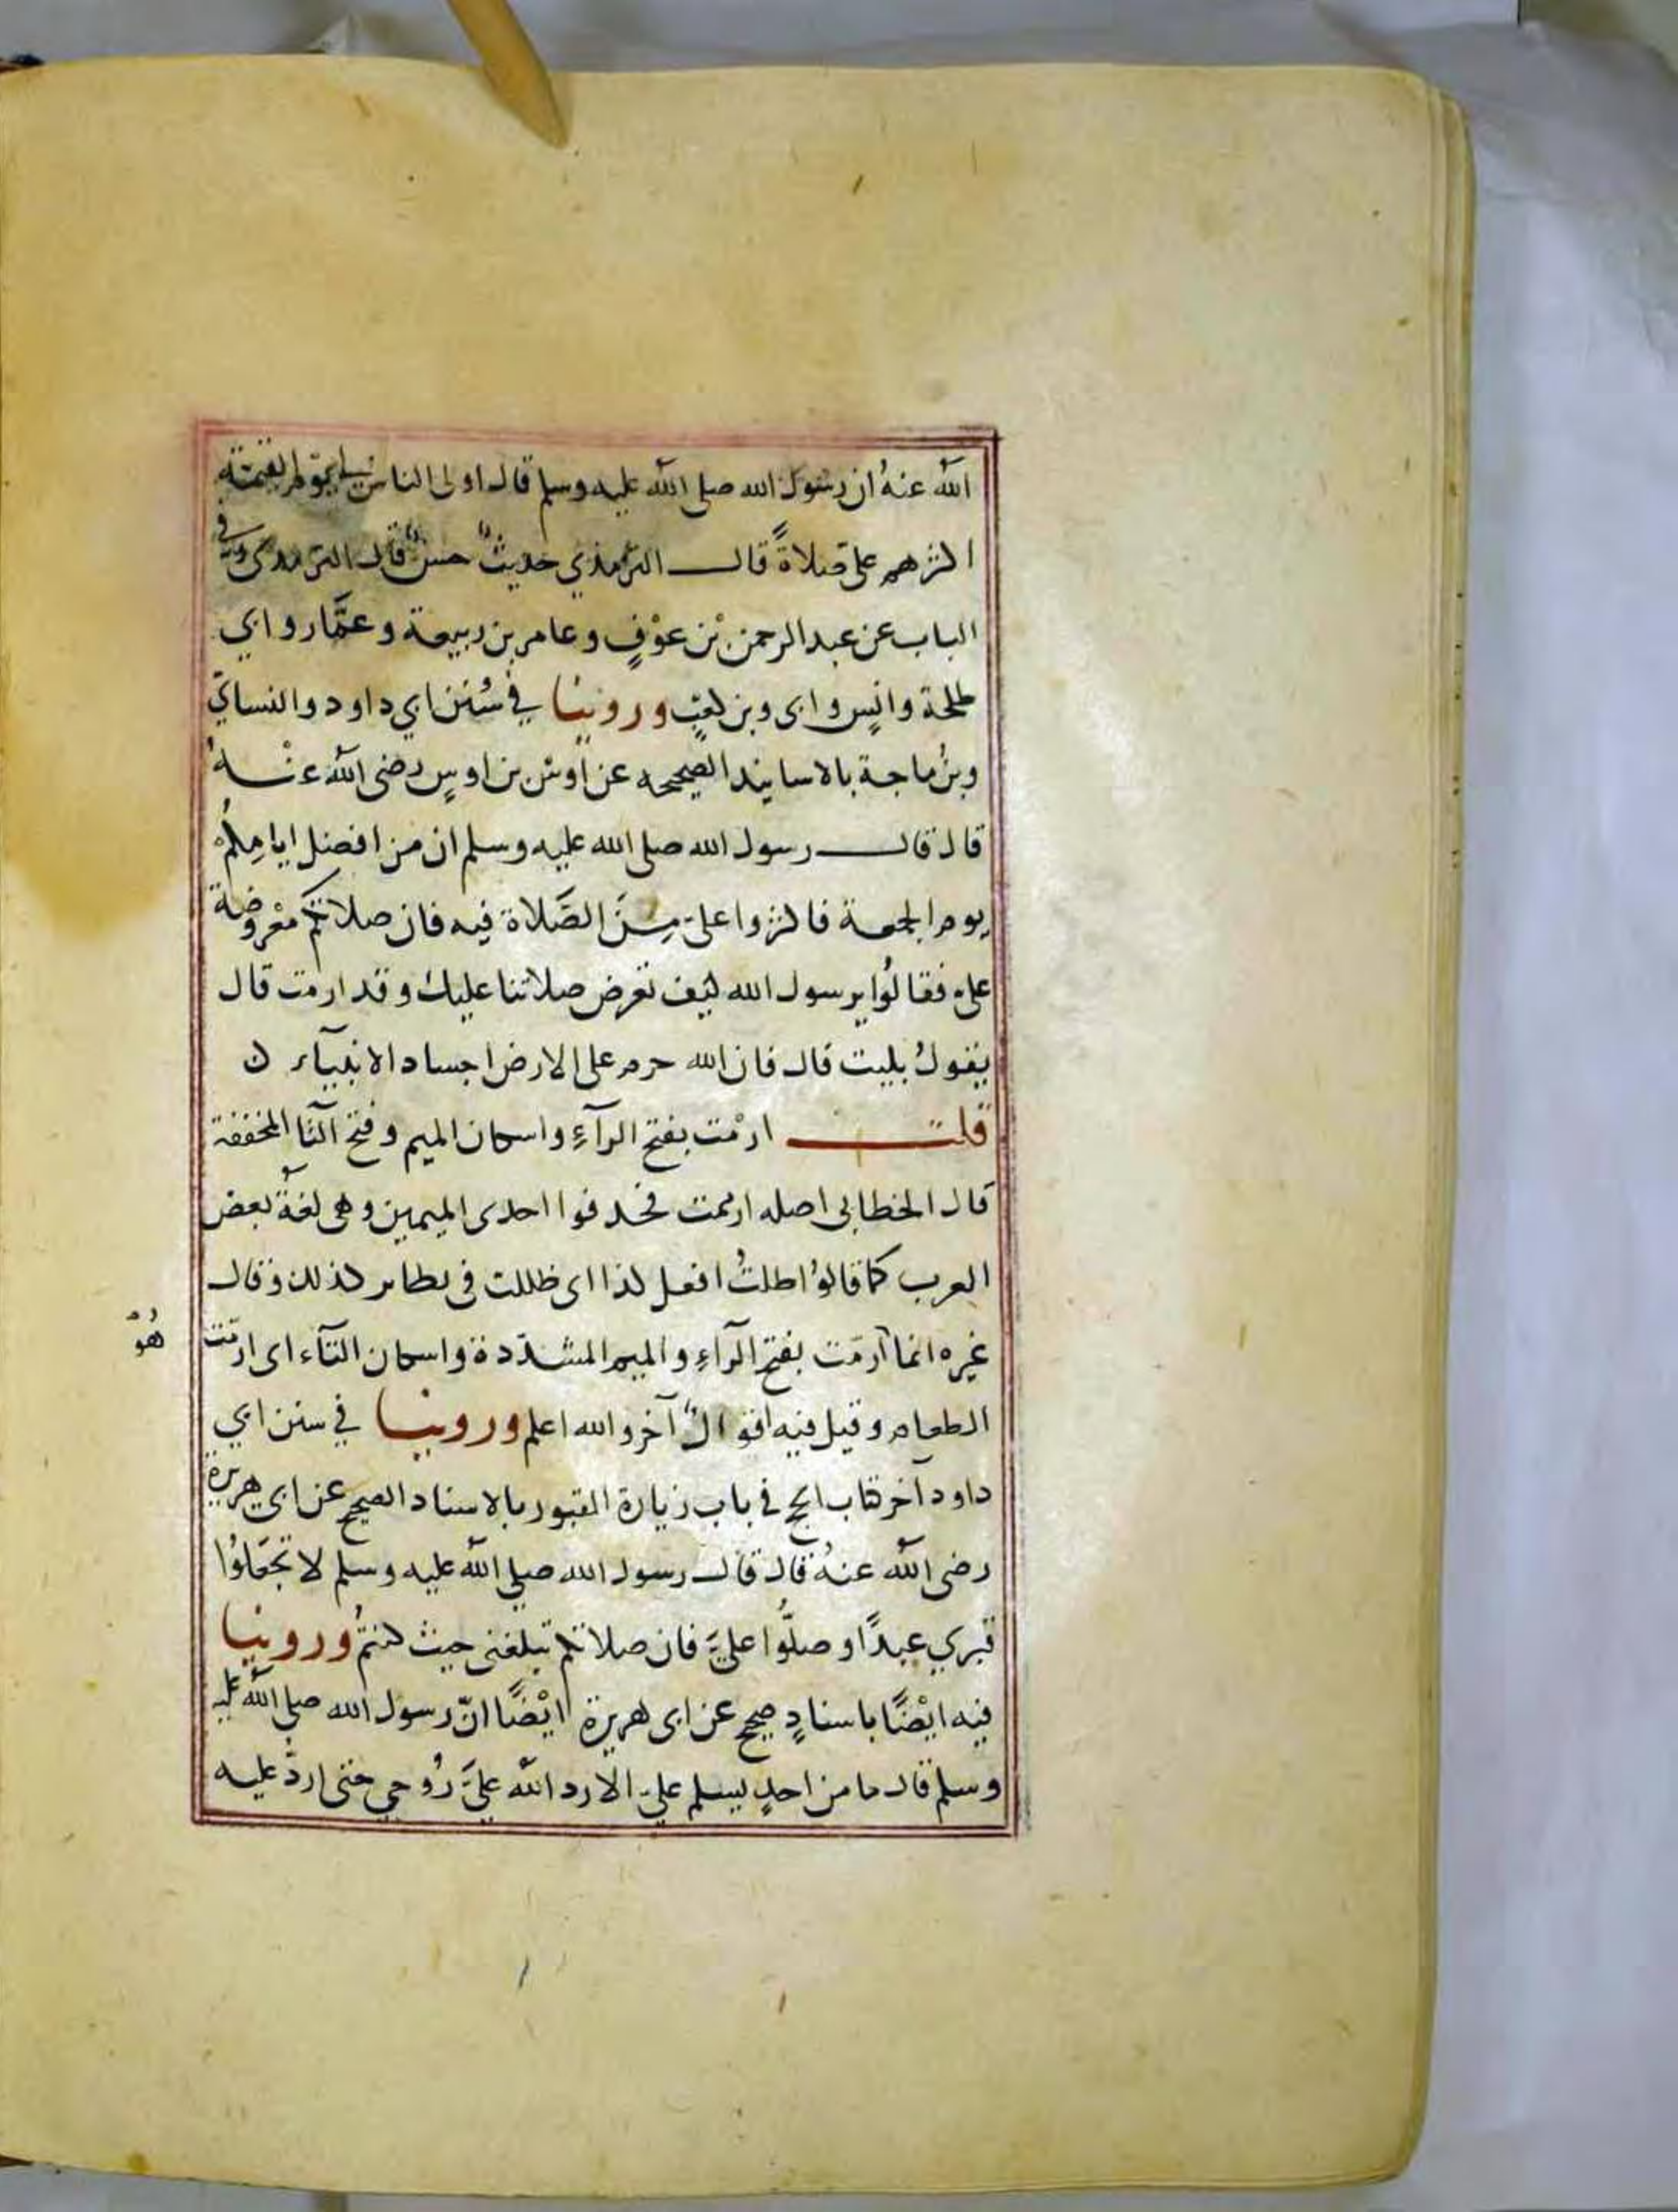 الله عنهُ ان رسول الله صلى الله عليه وسلم قال اولى الناس بي يوم القيمة
اكثرهم على صلاةً قال الترمذي حديثٌ حسنٌ قال الترمذى وفي
الباب عن عبد الرحمن بن عوْفٍ وعامر بن ربيعة وعمَّار وابي
طلحة وانسٍ وابى وبن كعبٍ وروينا في سُنن ابي داود والنساي
وبن ماجة بالاسانيد الصحيحه عن اوس بن اوسٍ رضى الله عنْهُ
قال قال رسول الله صلى الله عليه وسلم ان من افضل ايامكم
يوم الجمعة فاكثروا على مِنَ الصَّلاة فيه فان صلاتكم معْروضة
على فقالُوا يرسول الله كيف تعرض صلاتنا عليك وقد ارمت قال
يقولُ بليت قال فان الله حرم على الارض اجساد الانبيآء ن
قلت ارمْت بفتح الرآءِ واسكان الميم وفتح التا المخففة
قال الخطابى اصله ارممت فحذفوا احدى الميمين وهى لغةُ بعض
العرب كما قالوُا ظلتُ افعل كذا اى ظللت فى نظاير كذلك وقال
غيره انما ارمّت بفتح الرآءِ والميم المشدّدة واسكان التآء اى ارمّت
هُوَ
الطعام وقيل فيه اقوالٌ آخر والله اعلم وروينا في سنن ابي
داود آخر كتاب الحج في باب زيارة القبور بالاسناد الصحيح عن ابي هريرة
رضى الله عنهُ قال قال رسول الله صلي الله عليه وسلم لا تجعَلوُا
قبري عيدًا وصلُّوا عليَّ فان صلاتكم تبلغنى حيث كنتمُ وروينا
فيه ايْضًا باسنادٍ صحيح عن ابى هريرة ايْضًا انّ رسول الله صلي الله عليه
وسلم قال ما من احدٍ يسلم عليّ الا رد الله عليَّ رُوحي حتى اردّ عليه